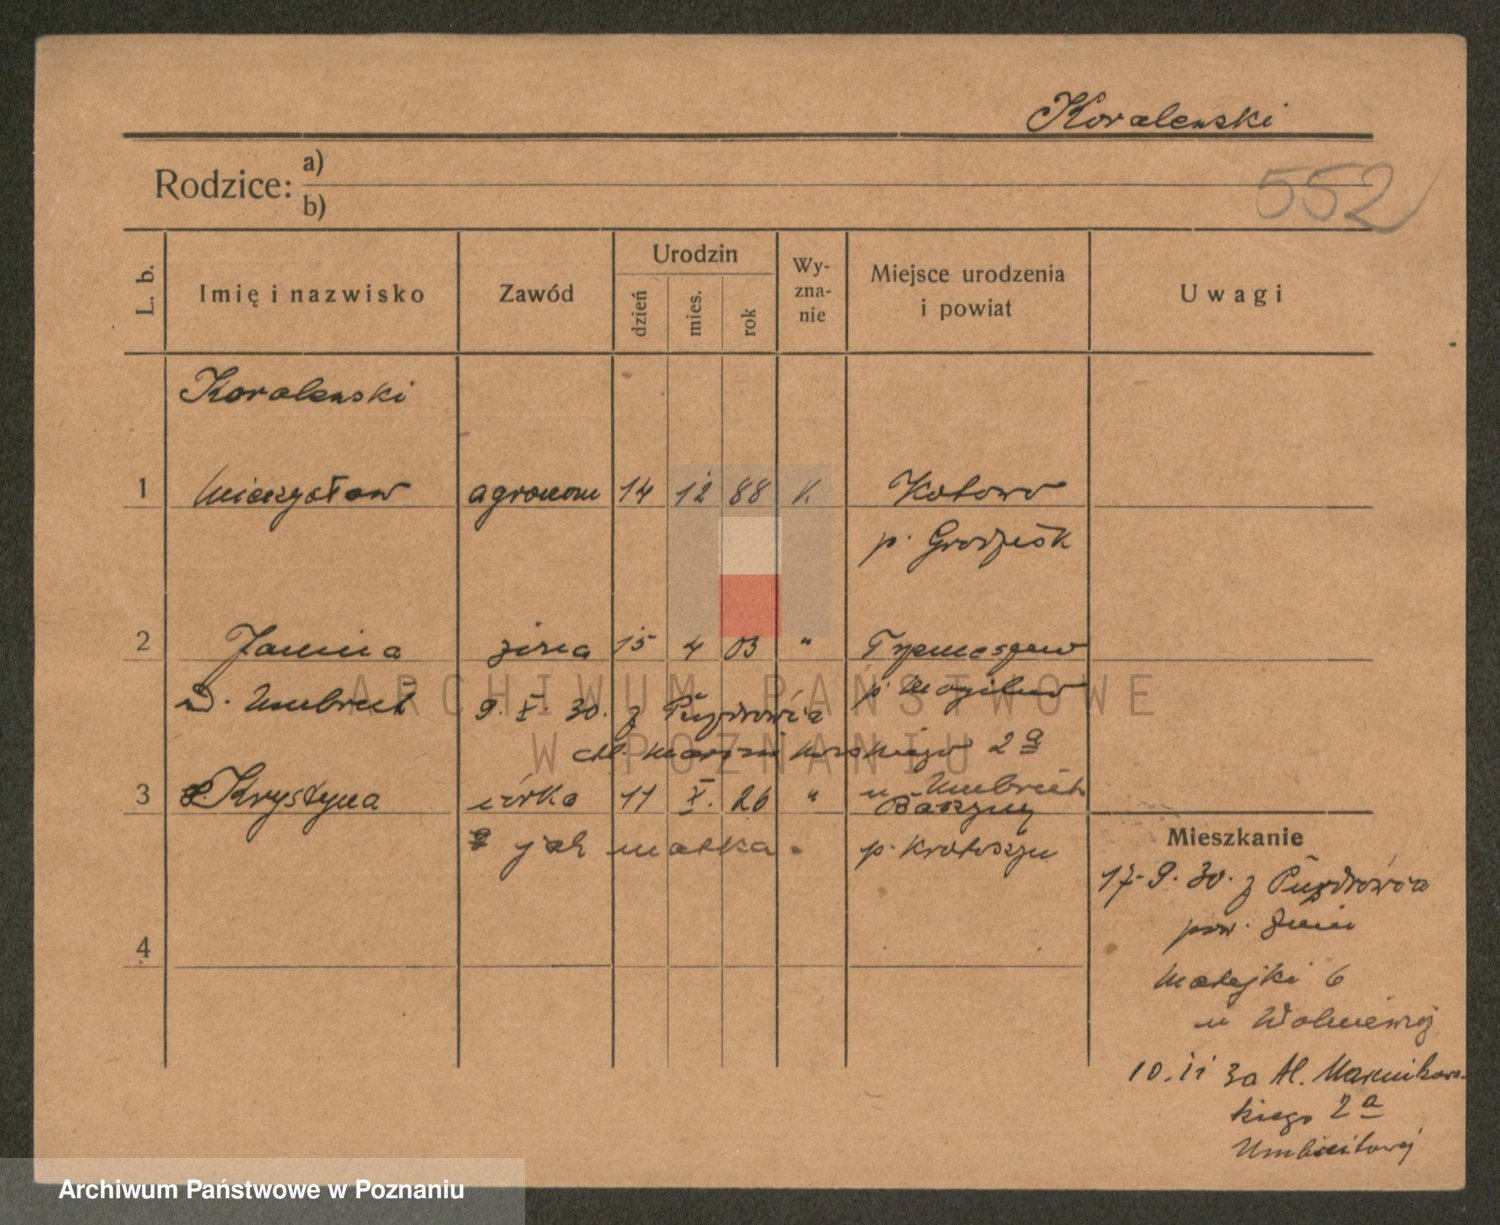 Koralewski
Rodzice: a)
b)
552
L. b.
Imię i nazwisko
Zawód
Urodzin
dzień
mies.
rok
Wy-
zna-
nie
Miejsce urodzenia
i powiat
Uwagi
Koralewski
1 Mieczysław agronom 14 12 88 k. Kotowo
p. Grodzisk
2 Janina żona 15 4 03 " Trzemeszno
D. Umbreit p. Mogilno
9. X. 30. z Puzdrowia
Al. Marcinkowskiego 2a
u Umbreit
3 Krystyna córka 11 X. 26 "
jak matka. p. Krotoszyn
Mieszkanie
17. 9. 30. z Puzdrowia
pow.
Matejki 6
u
10. 11 30 Al. Marcinkows-
kiego 2a
4
ARCHIWUM PAŃSTWOWE
W POZNANIU
Archiwum Państwowe w Poznaniu